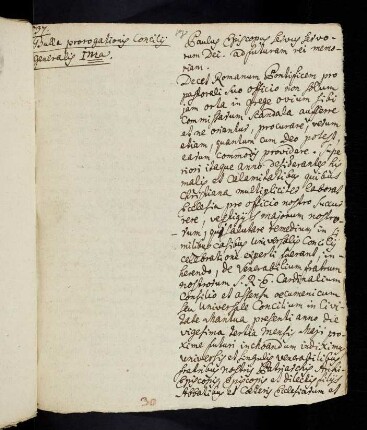 37
Bulla prorogationis Concilij
generalis Ima.
Paulus Episcopus servus servo-
rum Dei. ad futuram rei memo-
riam.
Decet Romanum Pontificem pro
pastorali suo officio non solum
jam orta in grege ovium sibi
commissarum scandala auferre
et ne oriantur, procurare, verum
etiam, quantum cum Deo potest
earum commodis providere. Supe-
riori itaque anno desiderantes his
malis et calamitatibus quibus
Christiana multipliciter laborat
Ecclesia pro officio nostro succur-
rere, vestigijs majorum nostro-
rum, qui salutare remedium in si-
milibus casibus universalis Concilij
celebratione experti fuerant, in-
herendo, de Venerabilium fratrum
nostrorum S. R. E. Cardinalium
Consilio et assensu oecumenicum
seu Universale Concilium in Civi-
tate Mantua presenti anno die
vigesima tertia mensis Maij pro-
xime futuri inchoandum indiximus
universis et singulis venerabilibus
fratribus nostris Patriarchis Archi-
Episcopis Episcopis et dilectis filijs
Abbatibus et Coeteris Ecclesiarum et
30